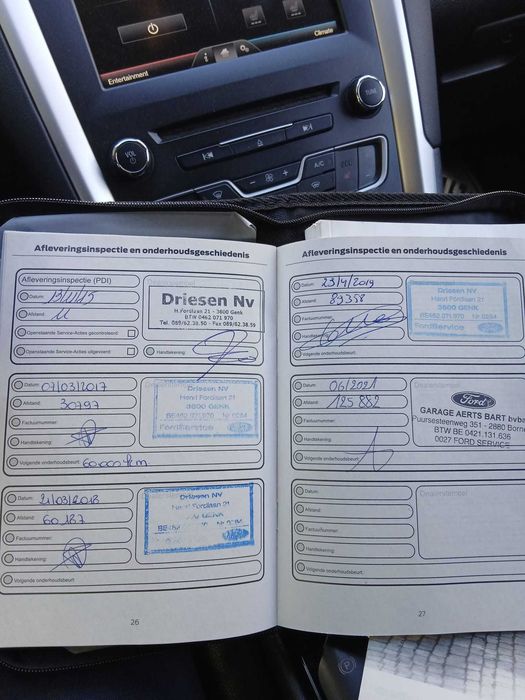 Entertainment
Climate
VOL
TUNE
A/C
Afleveringsinspectie en onderhoudsgeschiedenis
Afleveringsinspectie (PDI)
Datum:
Afstand: 11
Openstaande Service-Acties gecontroleerd
Openstaande Service-Acties uitgevoerd
Handtekening:
Driesen Nv
H.Fordlaan 21 - 3600 Genk
BTW 0462.071.970
Tel. 089/62.38.50 - Fax 089/62.38.59
Datum: 07/03/2017
Afstand: 30797
Factuurnummer:
Handtekening:
Volgende onderhoudsbeurt: 60000 km
Driesen NV
Henri Fordlaan 21
3600 GENK
BE462.071.970 Nr 0284
FordService
Datum: 21/03/2018
Afstand: 60187
Factuurnummer:
Handtekening:
Volgende onderhoudsbeurt:
Driesen NV
Henri Fordlaan 21
GENK
26
Afleveringsinspectie en onderhoudsgeschiedenis
Datum: 23/4/2019
Afstand: 83358
Factuurnummer:
Handtekening:
Volgende onderhoudsbeurt:
Driesen NV
Henri Fordlaan 21
3600 GENK
BE462.071.970 Nr 0284
FordService
Datum: 06/2021
Afstand: 125 882
Factuurnummer:
Handtekening:
Volgende onderhoudsbeurt:
Dealerstempel
Ford
GARAGE AERTS BART bvba
Puursesteenweg 351 - 2880 Borne
BTW BE 0421.131.636
0027 FORD SERVICE
Datum:
Afstand:
Factuurnummer:
Handtekening:
Volgende onderhoudsbeurt:
Dealerstempel
27
P